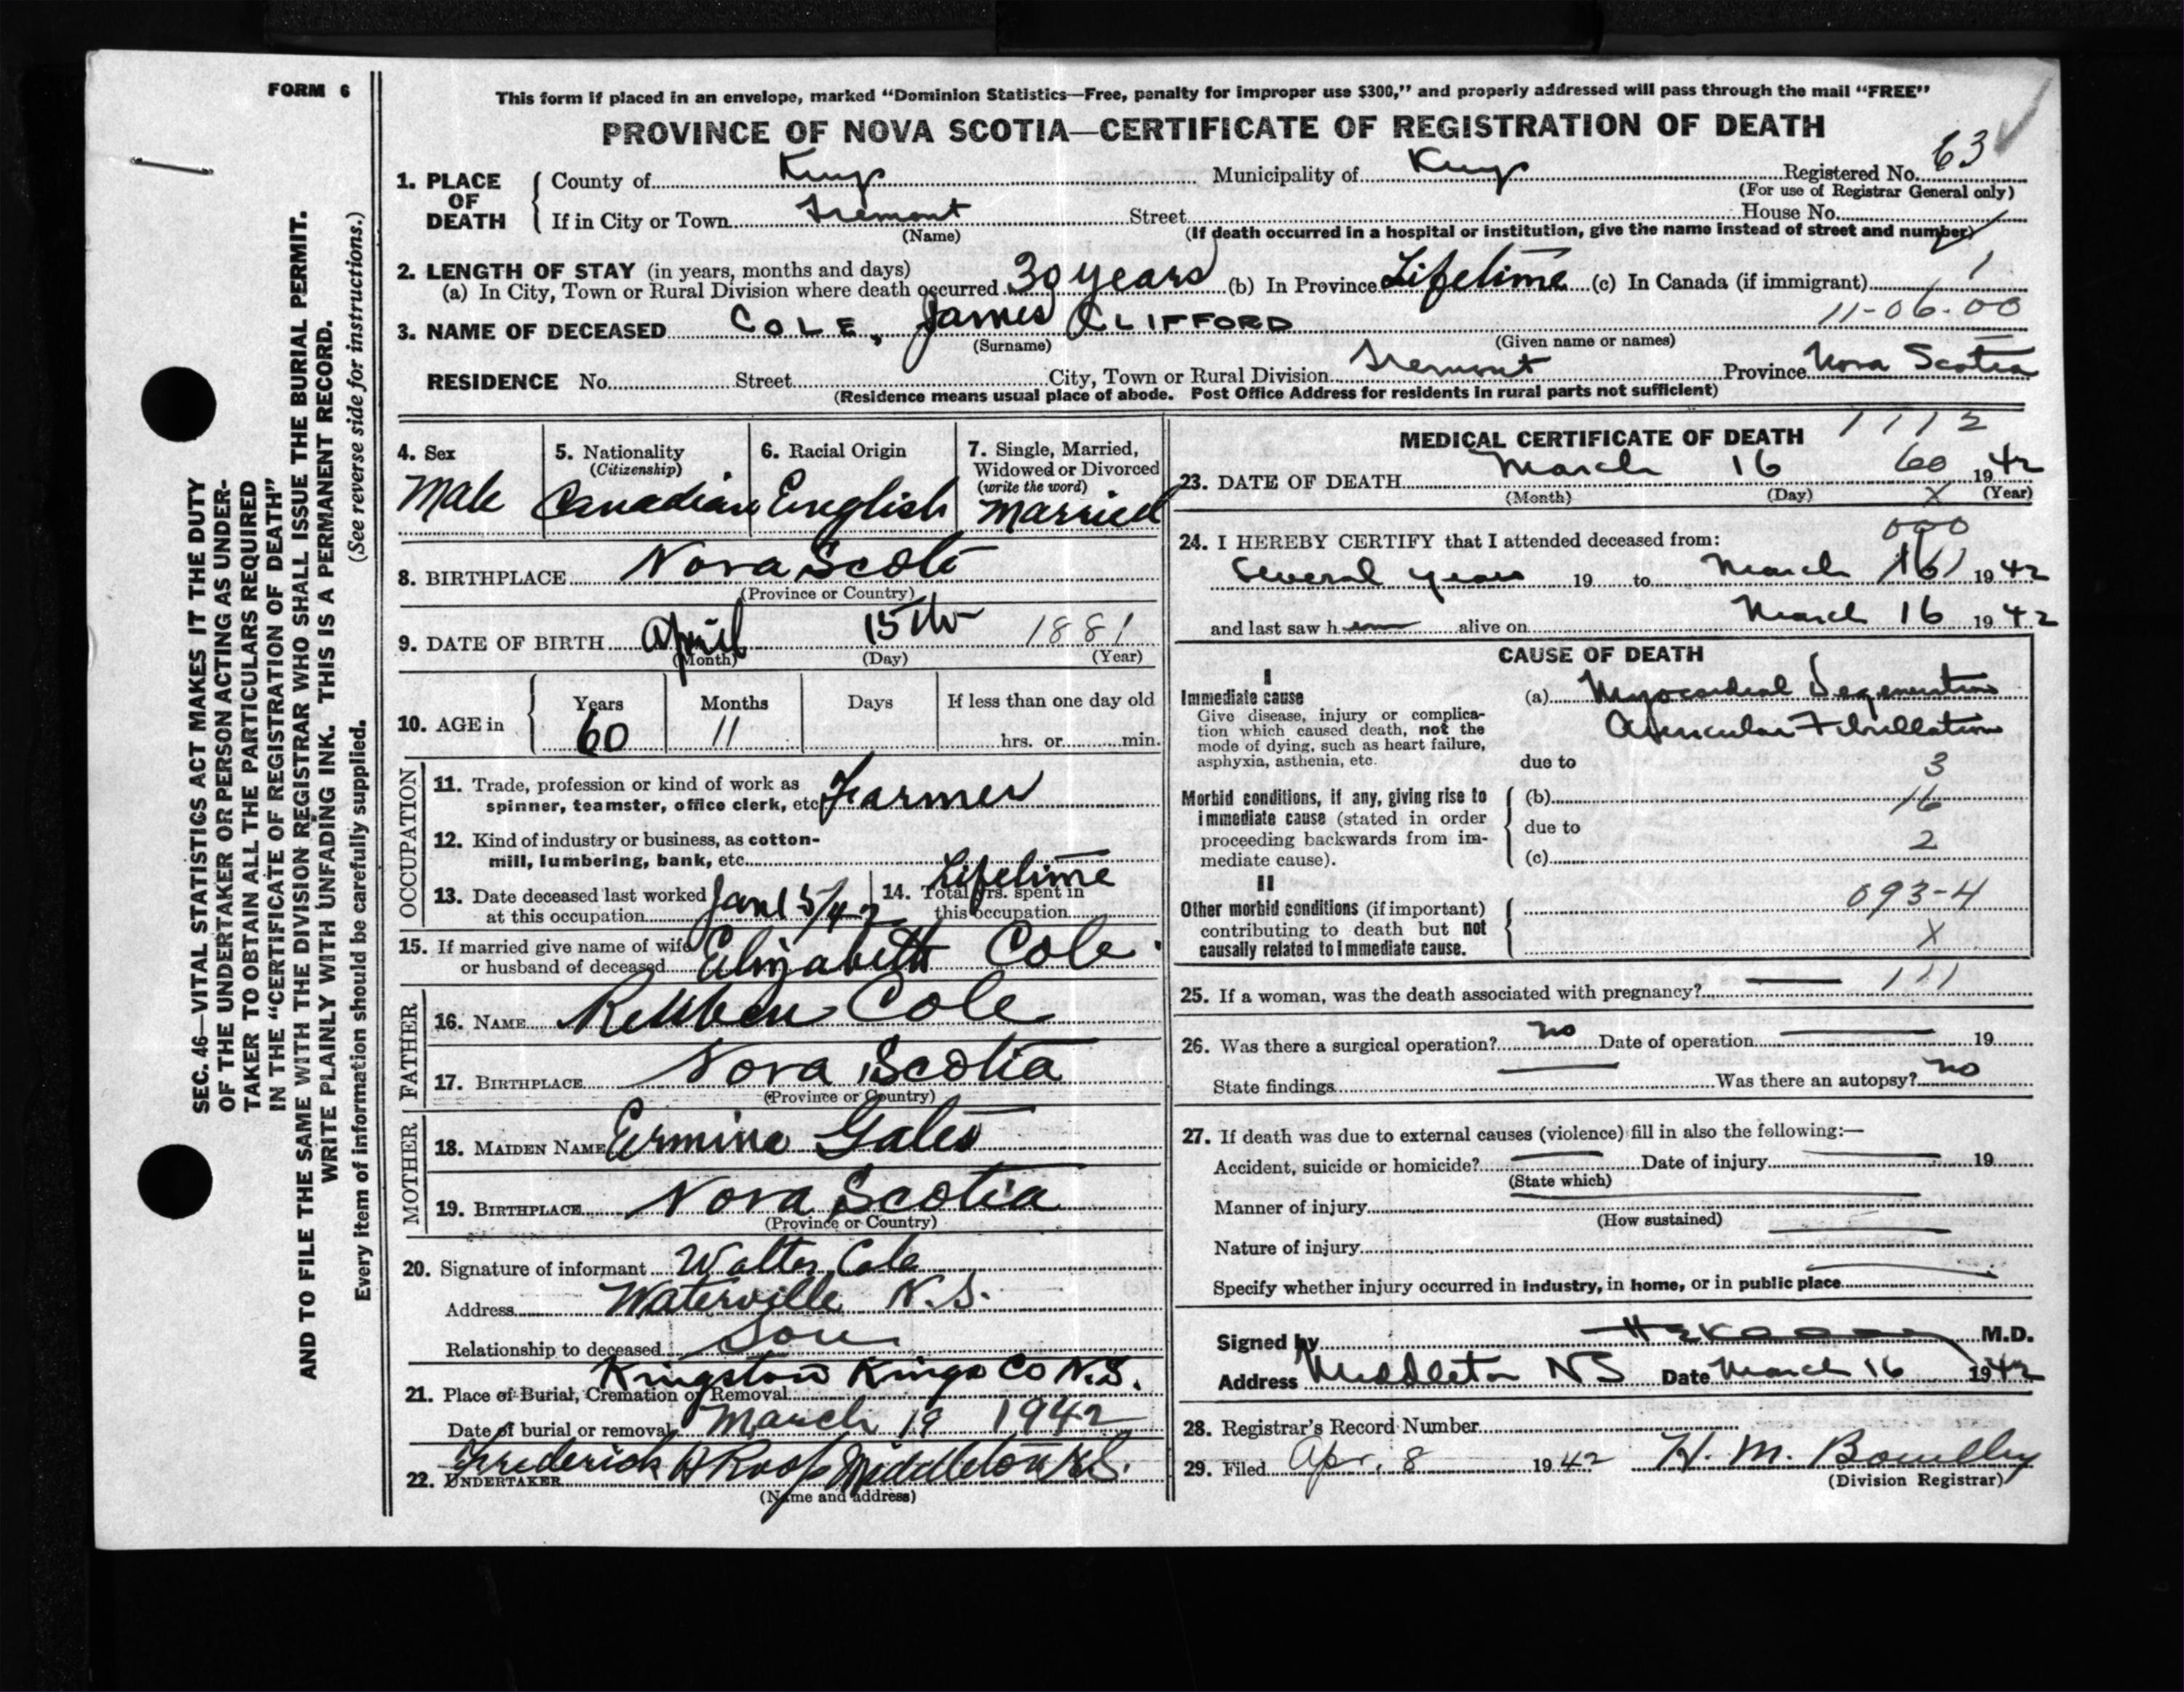 FORM 6
This form if placed in an envelope, marked “Dominion Statistics—Free, penalty for improper use $300,” and properly addressed will pass through the mail “FREE”
PROVINCE OF NOVA SCOTIA—CERTIFICATE OF REGISTRATION OF DEATH
SEC. 46—VITAL STATISTICS ACT MAKES IT THE DUTY
OF THE UNDERTAKER OR PERSON ACTING AS UNDER-
TAKER TO OBTAIN ALL THE PARTICULARS REQUIRED
IN THE “CERTIFICATE OF REGISTRATION OF DEATH”
AND TO FILE THE SAME WITH THE DIVISION REGISTRAR WHO SHALL ISSUE THE BURIAL PERMIT.
WRITE PLAINLY WITH UNFADING INK. THIS IS A PERMANENT RECORD.
Every item of information should be carefully supplied. (See reverse side for instructions.)
1. PLACE OF DEATH County of Kings Municipality of Kings Registered No. 63
(For use of Registrar General only)
If in City or Town Tremont Street House No.
(Name) (If death occurred in a hospital or institution, give the name instead of street and number)
2. LENGTH OF STAY (in years, months and days)
(a) In City, Town or Rural Division where death occurred 39 years (b) In Province Lifetime (c) In Canada (if immigrant) 1
11-06-00
3. NAME OF DECEASED COLE, James CLIFFORD
(Surname) (Given name or names)
RESIDENCE No. Street City, Town or Rural Division Tremont Province Nova Scotia
(Residence means usual place of abode. Post Office Address for residents in rural parts not sufficient)
4. Sex Male
5. Nationality (Citizenship) Canadian
6. Racial Origin English
7. Single, Married, Widowed or Divorced (write the word) Married
8. BIRTHPLACE Nova Scoti
(Province or Country)
9. DATE OF BIRTH April 15th 1881
(Month) (Day) (Year)
10. AGE in Years 60 Months 11 Days If less than one day old
hrs. or min.
OCCUPATION
11. Trade, profession or kind of work as spinner, teamster, office clerk, etc. Farmer
12. Kind of industry or business, as cotton-
mill, lumbering, bank, etc.
13. Date deceased last worked at this occupation
14. Total yrs. spent in this occupation Lifetime
15. If married give name of wife or husband of deceased Elizabeth Cole
FATHER
16. NAME Reuben Cole
17. BIRTHPLACE Nova Scotia
(Province or Country)
MOTHER
18. MAIDEN NAME Ermina Gates
19. BIRTHPLACE Nova Scotia
(Province or Country)
20. Signature of informant Walter Cole
Address Waterville N.S.
Relationship to deceased Son
21. Place of Burial, Cremation or Removal Kingston Kings Co N.S.
Date of burial or removal March 19 1942
22. UNDERTAKER Frederick H Roop Middleton N.S.
(Name and address)
MEDICAL CERTIFICATE OF DEATH 1112
23. DATE OF DEATH March 16 60 1942
(Month) (Day) X (Year)
24. I HEREBY CERTIFY that I attended deceased from: 000
Several years 19 to March 16 1942
and last saw h alive on March 16 1942
CAUSE OF DEATH
I
Immediate cause (a) Myocardial Degeneration
Auricular Fibrillation
Give disease, injury or complica-
tion which caused death, not the
mode of dying, such as heart failure,
asphyxia, asthenia, etc. due to 3
Morbid conditions, if any, giving rise to (b) 16
immediate cause (stated in order due to
proceeding backwards from im- 2
mediate cause). (c)
II
Other morbid conditions (if important) 093-4
contributing to death but not
causally related to immediate cause. X
25. If a woman, was the death associated with pregnancy? 111
26. Was there a surgical operation? no Date of operation 19
State findings Was there an autopsy? no
27. If death was due to external causes (violence) fill in also the following:—
Accident, suicide or homicide? Date of injury 19
(State which)
Manner of injury
(How sustained)
Nature of injury
Specify whether injury occurred in industry, in home, or in public place
Signed by M.D.
Address Middleton NS Date March 16 1942
28. Registrar’s Record Number
29. Filed Apr. 8 1942 H. M.
(Division Registrar)